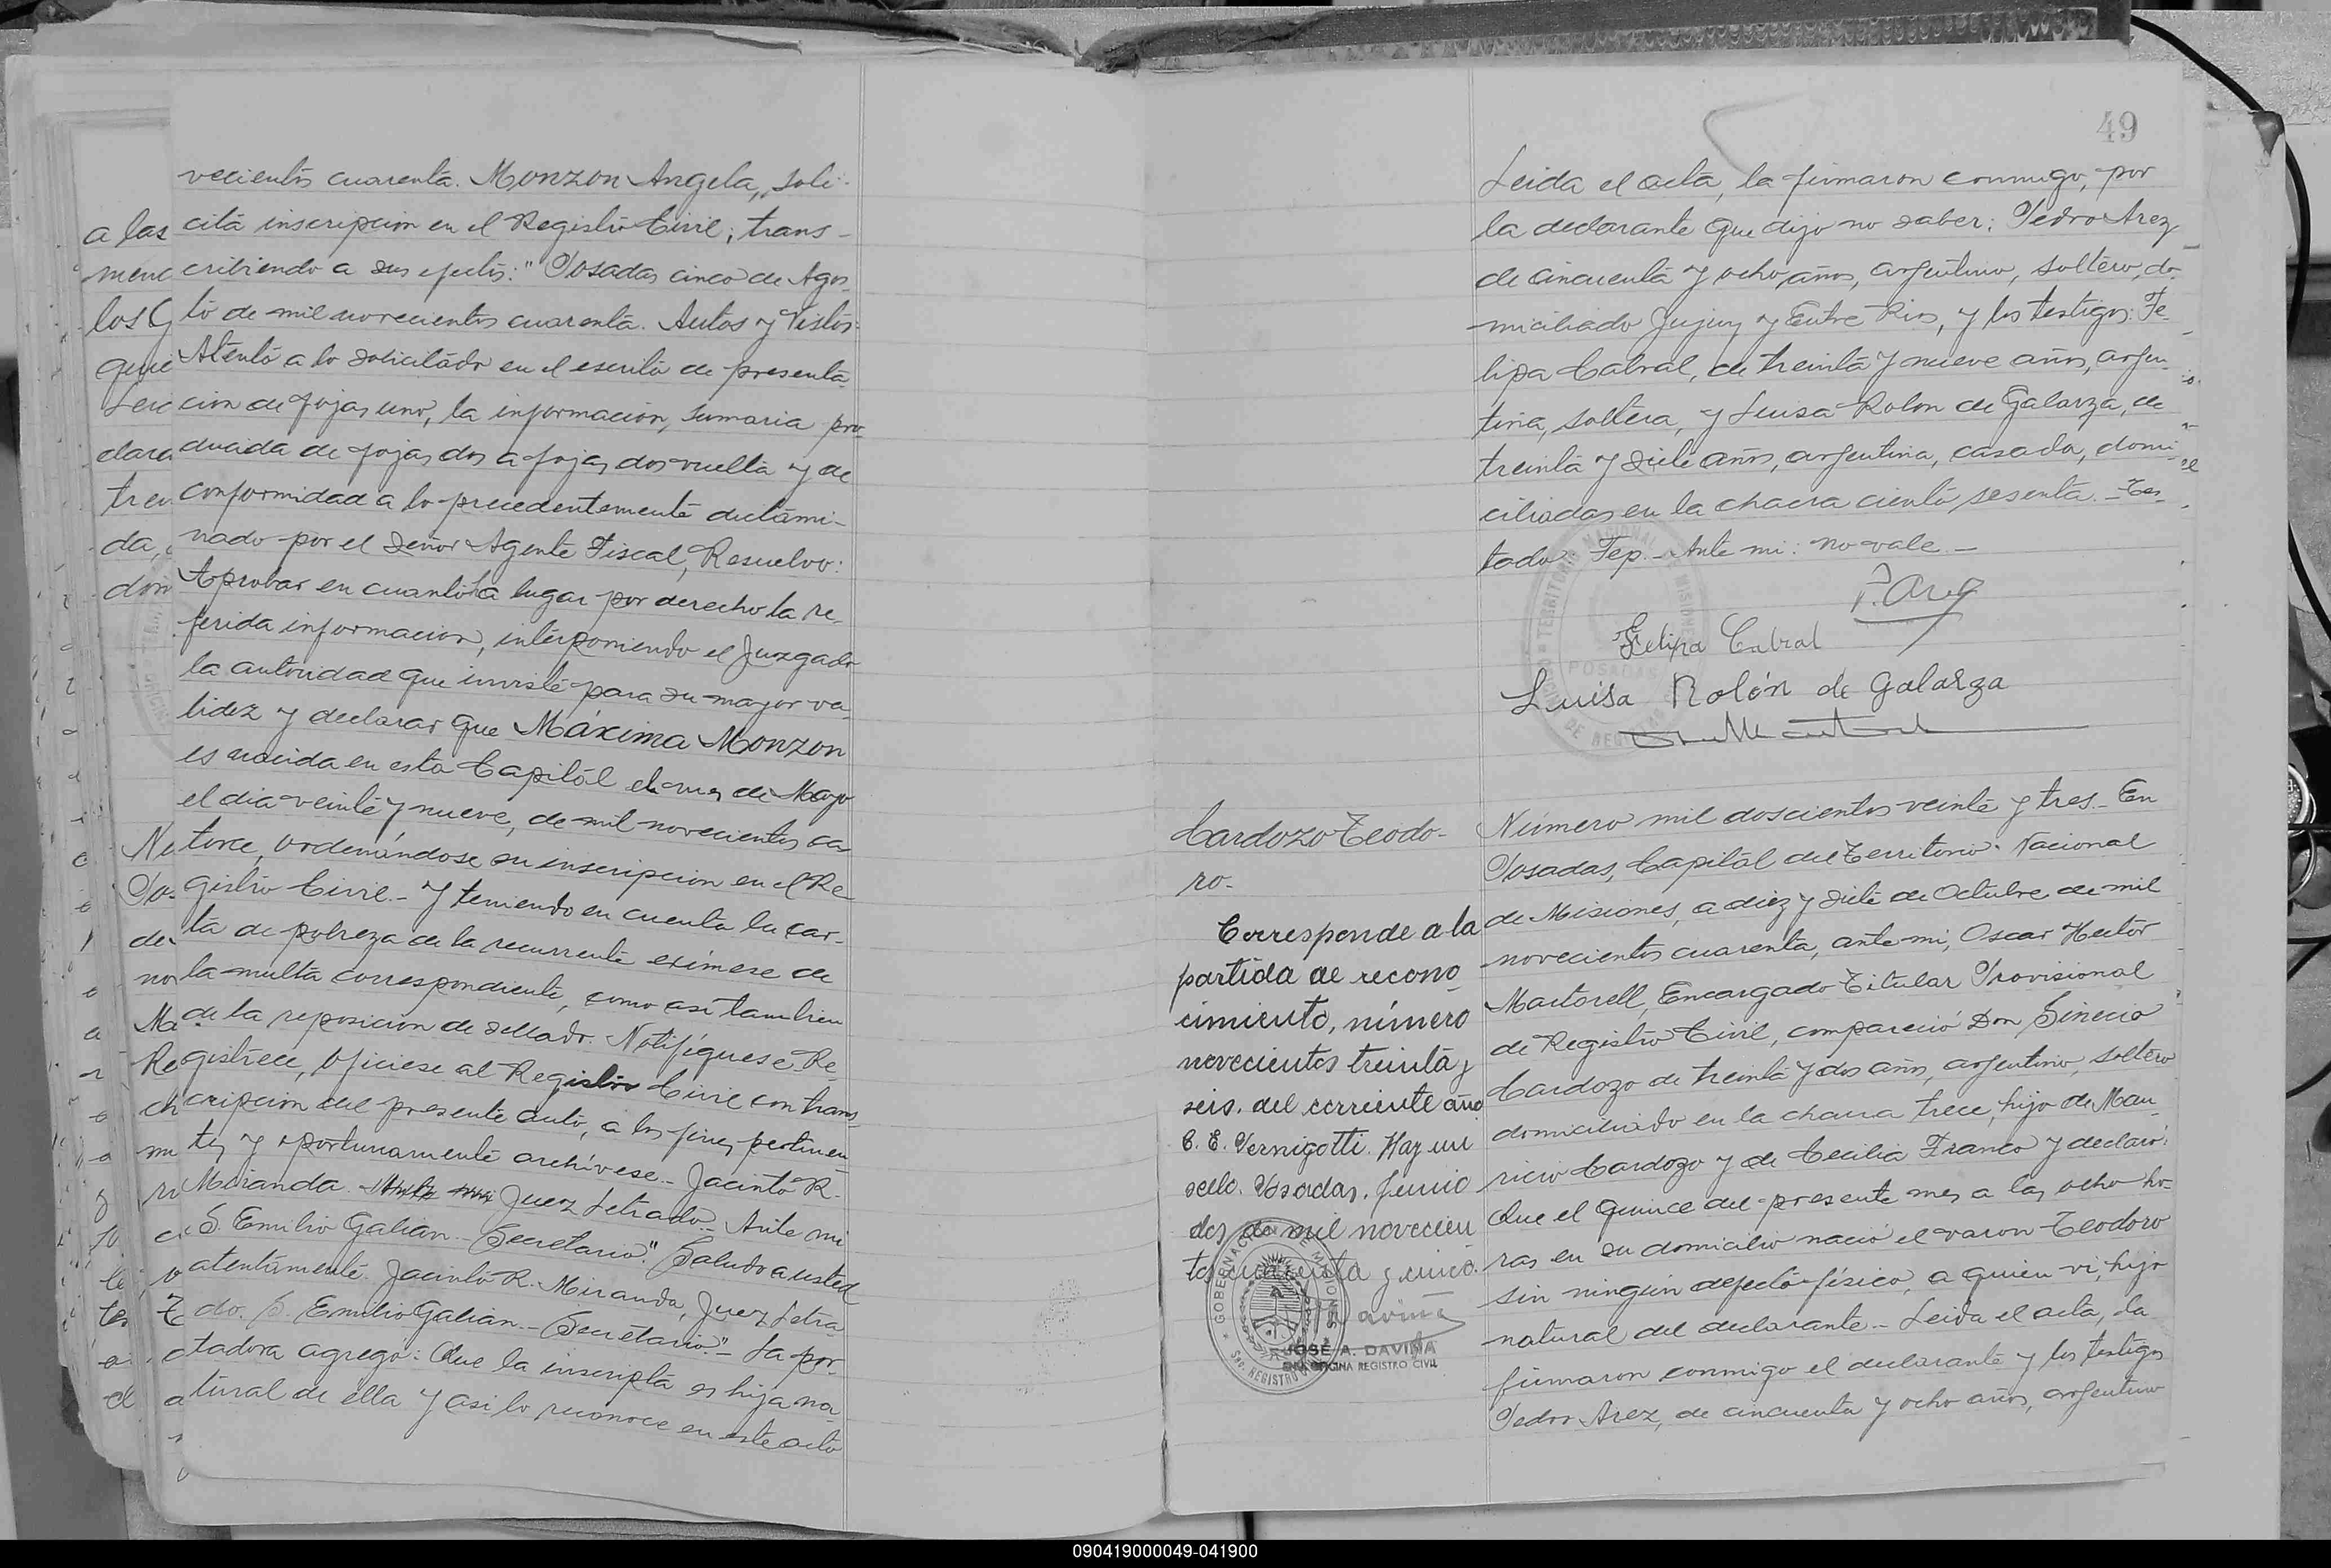 vecientos cuarenta. Monzon Angela, soli-
cita inscripcion en el Registro Civil, trans-
cribiendo a sus efectos: "Posadas cinco de Agos-
to de mil novecientos cuarenta. Autos y Vistos:
Atento a lo solicitado en el escrito de presenta-
cion de fojas uno, la informacion, sumaria pro-
ducida de fojas dos a fojas dos vuelta y de
conformidad a lo precedentemente dictami-
nado por el Señor Agente Fiscal, Resuelvo:
Aprobar en cuanto ha lugar por derecho la re-
ferida informacion, interponiendo el Juzgado
la autoridad que inviste para su mayor va-
lidez y declarar que Máxima Monzon
es nacida en esta Capital el mes de Mayo
el dia veinte y nueve, de mil novecientos ca-
torce, ordenándose su inscripcion en el Re-
gistro Civil.- Y teniendo en cuenta la car-
ta de pobreza de la recurrente exímese de
la multa correspondiente, como asi tambien
de la reposicion de sellado. Notifíquese Re-
gistrece, ofíciese al Registro Civil con trans-
cripcion del presente auto, a los fines pertinen-
tes y oportunamente archívese.- Jacinto R.
Miranda. Juez Letrado.- Ante mi
S. Emilio Galian.- Secretario". Saludo a usted
atentamente. Jacinto R. Miranda, Juez Letra-
do. S. Emilio Galian.- Secretario".- La por-
tadora agregó: Que la inscripta es hija na-
tural de ella y asi lo reconoce en este acto
a las
los
da,
49
Leida el acta, la firmaron conmigo, por
la declarante que dijo no saber: Pedro Arez
de cincuenta y ocho años, argentino, soltero, do-
miciliado Jujuy y Entre Rios, y los testigos: Fe-
lipa Cabral, de treinta y nueve años, argen-
tina, soltera, y Luisa Rolon de Galarza, de
treinta y siete años, argentina, casada, domi-
ciliadas en la chacra ciento sesenta.- Tes-
tado: Fep.- Ante mi: no vale.-
P. Arez
Felipa Cabral
Luisa Rolón de Galarza
TERRITORIO NACIONAL DE MISIONES
POSADAS
Cardozo Teodo-
ro.-
Corresponde a la
partida de recono
cimiento, número
novecientos treinta y
seis. del corriente año
C. E. Vernigotti. Hay un
sello. Posadas, Junio
dos de mil novecien
tos cuarenta y cinco.
GOBERNACION DE MISIONES
JOSÉ A. DAVIÑA
ENC. OFICINA REGISTRO CIVIL
Número mil doscientos veinte y tres.- En
Posadas, Capital del Territorio Nacional
de Misiones, a diez y siete de Octubre de mil
novecientos cuarenta, ante mi, Oscar Hector
Martorell, Encargado Titular Provisional
de Registro Civil, compareció Don Sinecio
Cardozo de treinta y dos años, argentino, soltero
domiciliado en la chacra trece, hijo de Mau-
ricio Cardozo y de Cecilia Franco y declaró:
Que el quince del presente mes a las ocho ho-
ras en su domicilio nació el varon Teodoro
sin ningún defecto físico, a quien vi, hijo
natural del declarante.- Leida el acta, la
firmaron conmigo el declarante y los testigos
Pedro Arez, de cincuenta y ocho años, argentino
090419000049-041900